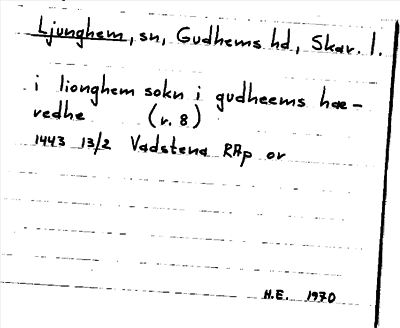 Ljunghem, sn, Gudhems hd, Skar. l.
i lionghem sokn i gudheems hæ-
vedhe (r. 8)
1443 13/2 Vadstena RAp or
H.E. 1970